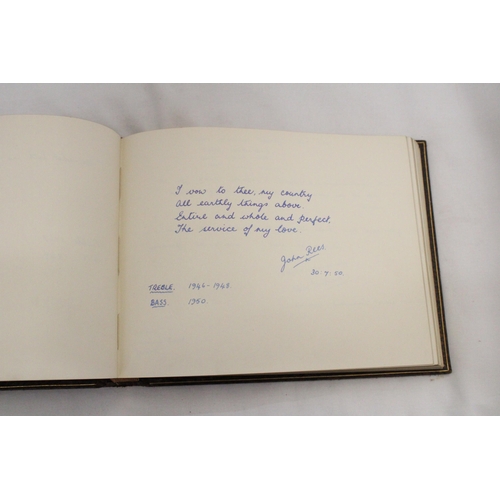 I vow to thee, my country
All earthly things above.
Entire and whole and perfect,
The service of my love.
John Rees
30.7.50.
TREBLE. 1946-1948.
BASS. 1950.